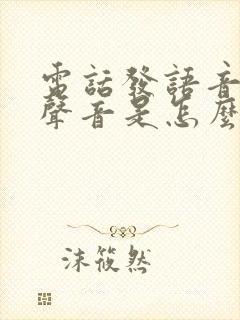 電話發語音
聲音是怎麼
沫筱然